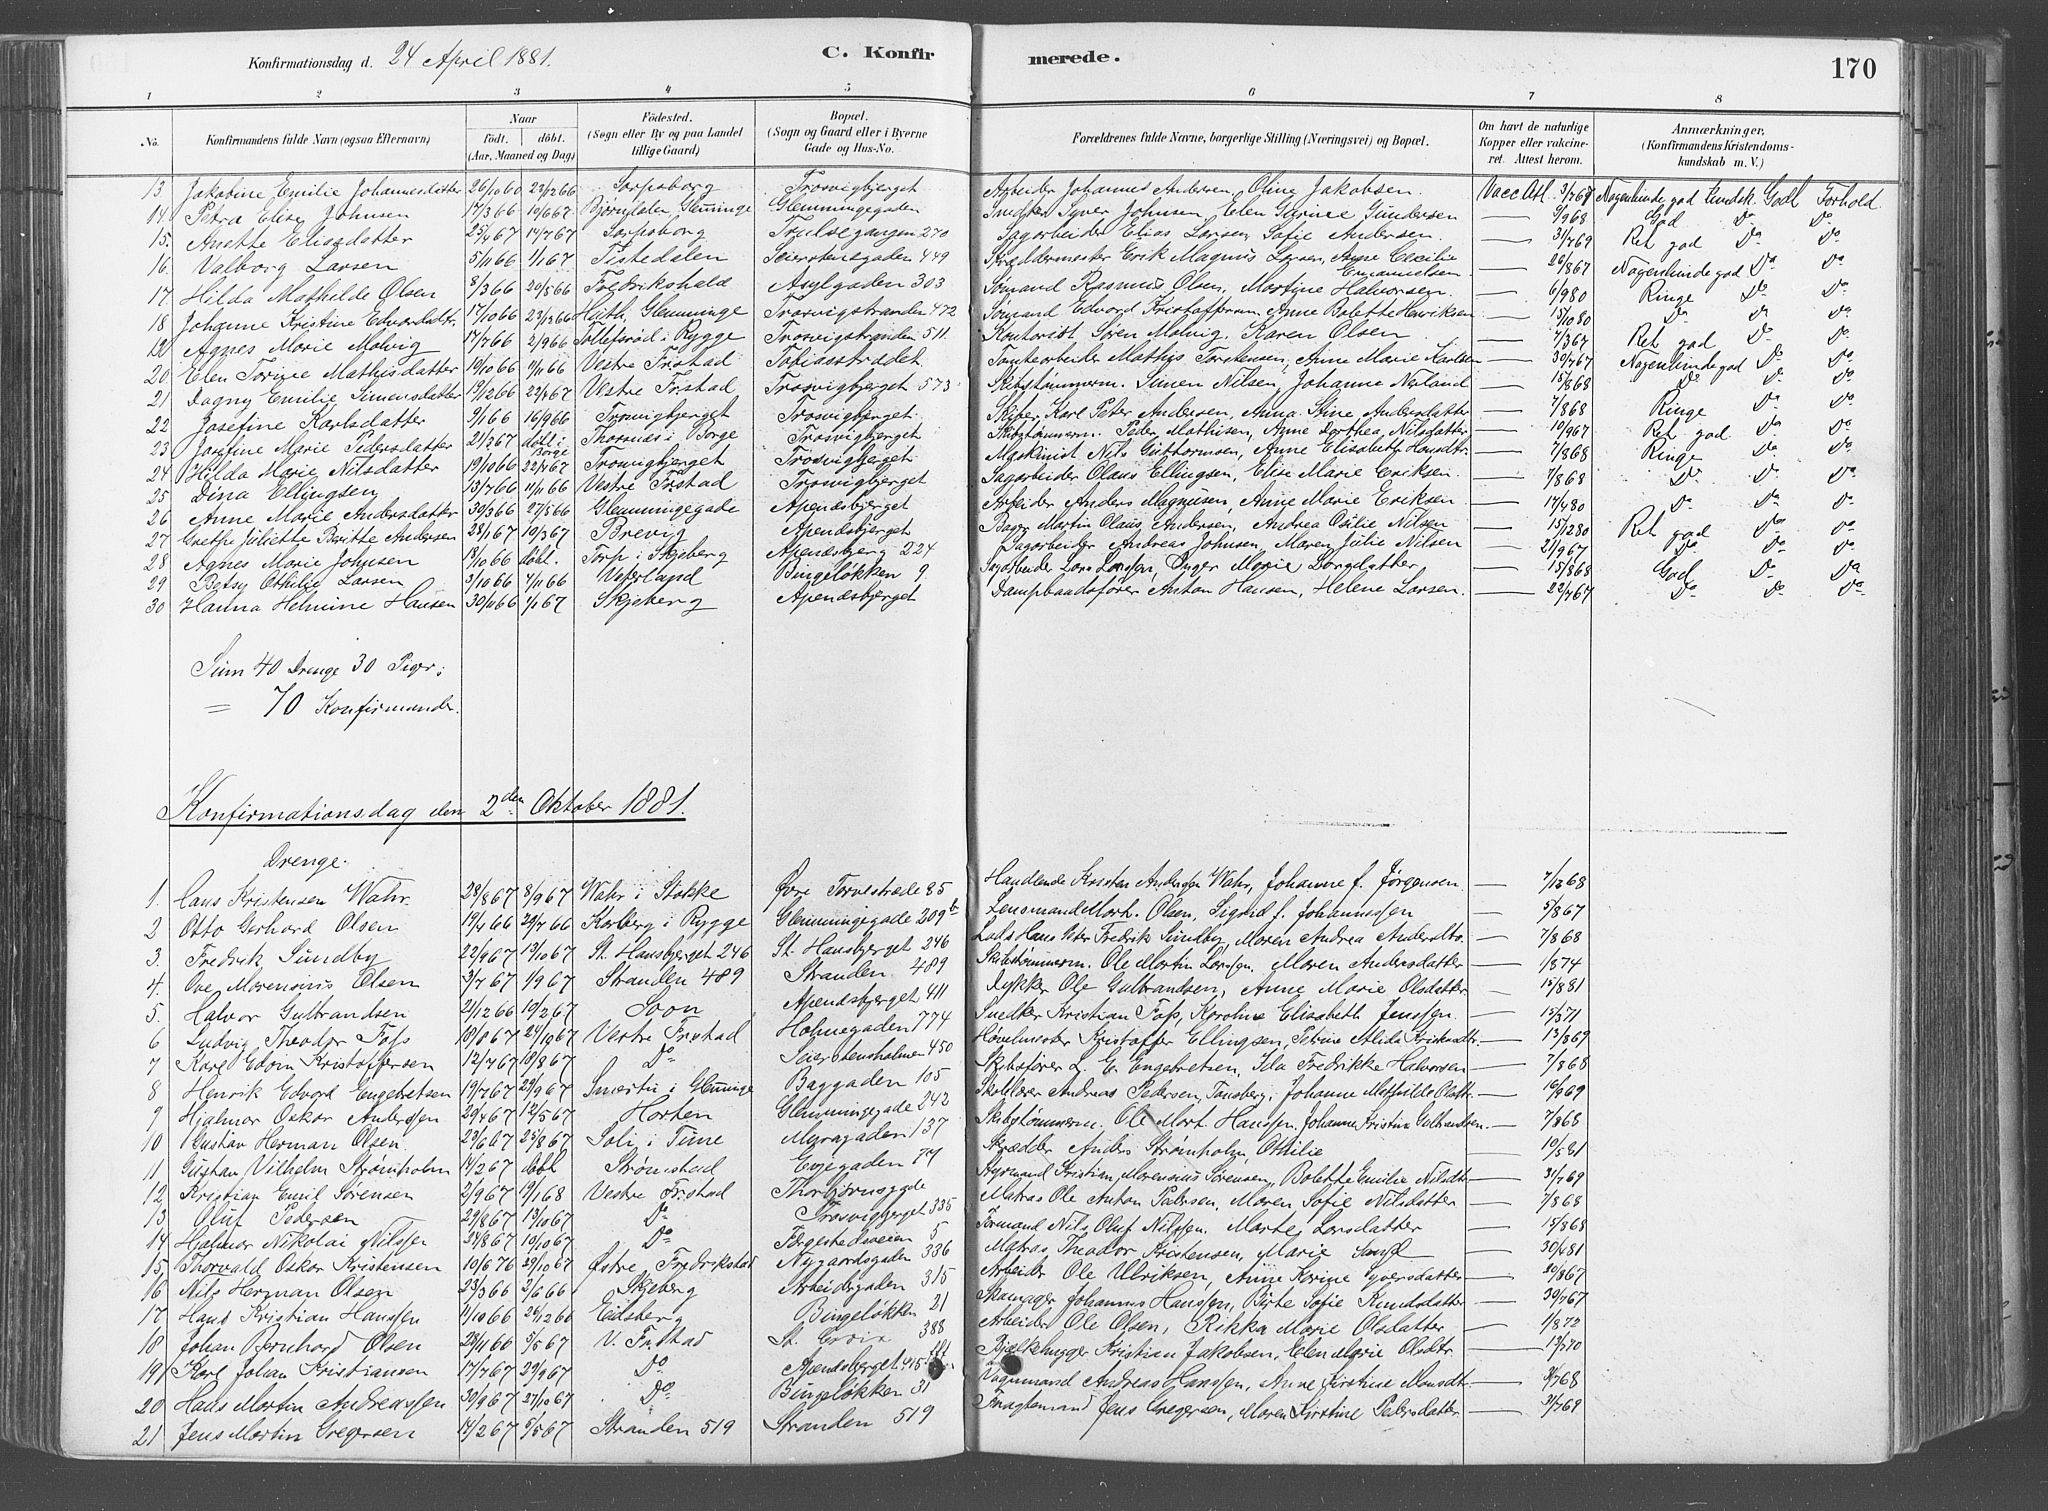 Konfirmationsdag d. 24 April 1881. C. Konfirmerede. 170
1 2 3 4 5 6 7 8
No. Konfirmandens fulde Navn (ogsaa Efternavn) Naar født. døbt. (Aar, Maaned og Dag) Fødested. (Sogn eller By og paa Landet tillige Gaard) Bopæl. (Sogn og Gaard eller i Byerne Gade og Hus-No. Forældrenes fulde Navne, borgerlige Stilling (Næringsvei) og Bopæl. Om havt de naturlige Kopper eller vakcineret. Attest herom. Anmærkninger. (Konfirmandens Kristendomskundskab m. V.)
13. Jakobine Emilie Johannesdatter 26/10 60 23/12 66 Sarpsborg Trosvigbjerget Arbeider Johannes Andersen, Oline Jakobsen. Vacc Att. 3/7 67 Nogenlunde god Kundsk. Godt Forhold
14. Petra Elise Johnsen 17/3 66 19/6 67 Bjørndalen Glemminge Glemmingegaden Smed Syver Johnsen, Elen Gurine Gundersen — 5/9 68 God Do Do
15. Anette Eliasdatter 25/4 67 14/7 67 Sarpsborg Trulsegangen 270 Sagarbeider Elias Larsen, Sofie Andersen. — 31/7 69 Ret god Do Do
16. Valborg Larsen 5/11 66 1/1 67 Tistedalen Seierstensgaden 449 Skræddermester Erik Magnus Larsen, Anne Cecilie Emanuelsen — 26/8 67 Nogenlunde god Do Do
17. Hilda Mathilde Olsen 8/3 66 20/5 66 Fredrikshald Asylgaden 303 Sømand Rasmus Olsen, Martine Halvorsen. — 6/9 80 Ringe Do Do
18 Johanne Kristine Edvardsdatr. 17/10 66 23/12 66 Huth, Glemminge Trosvigstranden 472 Sømand Edvard Kristoffersen, Anne Bolette Henriksen — 15/10 80 Do Do Do
19. Agnes Marie Malvig 17/7 66 2/9 66 Tollefsrød i Rygge Trosvigstranden 511. Kontorist Søren Malvig, Karen Olsen — 4/3 67 Ret god Do Do
20. Elen Torine Mathisdatter 19/10 66 11/11 66 Vestre Frstad Tobiasstrædet Tomtearbeider Mathis Torstensen, Anne Marie Karlsen — 30/7 67 Nogenlunde god Do Do
21 Dagny Emilie Simensdatter 19/12 66 22/4 67 Vestre Frstad Trosvigbjerget 573. Skibstømmerm. Simen Nilsen, Johanne Neiland — 15/8 68 Do Do Do
22 Josefine Karlsdatter 9/1 66 16/9 66 Trosvigbjerget Trosvigbjerget. Skiber Karl Peter Andersen, Anna Stine Andersdatter — 7/8 68 Ringe Do Do
23 Josefine Marie Pedersdatter 21/3 67 døbt i Borge Thorsnæs i Borge Trosvigbjerget Skibstømmerm. Peder Mathisen, Anne Dorthea Nilsdatter — 10/9 67 Ret god Do Do
24 Hilda Marie Nilsdatter 19/10 66 22/4 67 Trosvigbjerget Trosvigbjerget Maskinist Nils Guttormsen, Anne Elisabeth Hansdtr. — 7/8 68 Ringe Do Do
25 Dina Ellingsen 13/7 66 11/11 66 Vestre Frstad Trosvigbjerget Sagarbeider Olaus Ellingsen, Elise Marie Eriksen — 7/8 68 Do Do Do
26 Anne Marie Andersdatter 30/3 66 27/8 66 Glemmingegade Apenæsbjerget Arbeider Anders Magnusen, Anne Marie Eriksen — 17/4 80 Do Do Do
27 Grethe Juliette Beritte Andersen 28/1 67 19/3 67 Brevig Apenæsbjerget Bager Martin Olaus Andersen, Andrea Otilie Nilsen — 15/2 80 Ret god Do Do
28 Agnes Marie Johnsen 18/10 66 døbt. Torp i Skjeberg Apenæsbjerg 224 Sagarbeider Andreas Johnsen, Maren Julie Nilsen — 21/9 67 Do Do Do
29 Betsy Othilie Larsen 3/10 66 4/11 66 Vesterland Bingeløkken 9. Sagarbeider Lars Larssen, Inger Marie Larsdatter — 15/8 68 God Do Do
30 Hanna Helmine Hansen 30/11 66 1/1 67 Skjeberg Apenæsbjerget Dampbaadsfører Anton Hansen, Helene Larsen. — 22/7 67 Do Do Do
Sum 40 Drenge 30 Piger:
= 70 Konfirmander.
Konfirmationsdag den 2den Oktober 1881.
Drenge.
1. Hans Kristensen Wahr. 28/8 67 8/9 67 Wahr i Stokke Øvre Torvestræde 85 Handlende Kristen Andersen Wahr, Johanne f. Jørgensen. — 7/12 68
2 Otto Gerhard Olsen 19/4 66 29/7 66 Karlberg i Rygge Glemmingegade 209b Lensmand Mort. Olsen, Sigrid f. Johannessen — 5/8 67
3. Fredrik Sundby 22/9 67 13/10 67 St. Hansbjerget 246 St. Hansbjerget 246 Lods Hans Peter Fredrik Sundby, Maren Andrea Andersdtr. — 7/8 68
4. Ove Morensius Olsen 3/7 67 1/9 67 Stranden 489 Stranden. 489 Skibstømmerm. Ole Martin Larssen, Maren Andersdatter — 1/8 74
5. Halvor Gulbrandsen 21/12 66 10/2 67 Soon Apenæsbjerget 411 Dykker Ole Gulbrandsen, Anne Marie Olsdatter — 15/8 81
6 Ludvig Theodor Foss 18/8 67 24/10 67 Vestre Frstad Holmegaden 774 Snedker Kristian Foss, Karoline Elisabeth Jenssen. — 15/5 71
7 Karl Edvin Kristoffersen 12/7 67 18/8 67 Do Seierstensholmen 450 Høvelmester Kristoffer Ellingsen, Petrine Alida Kristiansdtr. — 13/8 69
8 Henrik Edvard Engebretsen 19/7 67 29/9 67 Smertu i Glemminge Baggaden 105 Skibsfører L. E. Engebretsen, Ida Fredrikke Halvorsen — 7/8 68
9 Hjalmar Oskar Anderssen 29/4 67 12/5 67 Horten Glemmingegade 242 Skolelærer Andreas Pedersen, Tønsberg, Johanne Mathilde Olsdtr. — 16/6 69
10 Gustav Herman Olsen 23/6 67 25/8 67 Soli i Tune Myragaden 137 Skibstømmerm. Ole Mort. Hanssen, Johanne Kristine Gulbrandsen. — 7/8 68
11 Gustav Vilhelm Strømholm 14/2 67 døbt Strømstad Engegaden 79 Skrædder Anders Strømholm Othilie — 19/5 81
12 Kristian Emil Sørensen 2/9 67 19/1 68 Vestre Frstad Thorbjørnsgade Styrmand Kristian Morensius Sørensen, Bolette Emilie Nilsdtr. — 31/7 69
13 Oluf Pedersen 29/8 67 13/10 67 Do Trosvigbjerget 335 Matros Ole Anton Pedersen, Maren Sofie Nilsdatter — 7/8 68
14 Hjalmar Nikolai Nilssen 24/8 67 10/10 67 Do Færgestedsveien 5 Formand Nils Oluf Nilssen, Marte Larsdatter — 15/8 68
15. Thorvald Oskar Kristensen 10/6 76 29/10 67 Østre Fredrikstad Nygaardsgaden 336 Matros Theodor Kristensen, Marie — 30/6 81
16 Nils Herman Olsen 23/3 66 2/6 66 Skjeberg Arbeidergaden 315 Arbeider Ole Ulriksen, Anne Karine Syversdatter — 20/8 67
17 Hans Kristian Hanssen 11/10 66 26/12 66 Eidsberg Bingeløkken 21 Skomager Johannes Hanssen, Birte Sofie Knudsdatter — 30/7 67
18 Johan Bernhard Olsen 28/11 66 5/5 67 V. Frstad St. Croix 388 Arbeider Ole Olsen, Rikka Marie Olsdatter — 1/8 72
19 Karl Johan Kristiansen 17/7 67 29/9 67 Do Apenæsberget 415 Bjelkehugger Kristian Jakobsen, Elen Marie Olsdtr. — 13/5 70
20 Hans Martin Andreassen 30/9 67 27/10 67 Do Bingeløkken 31 Vognmand Andreas Hanssen, Anne Kirstine Monsdtr. — 31/7 68
21 Jens Martin Gregersen 14/2 67 5/5 67 Stranden 519 Stranden 519 Fragtemand Jens Gregersen, Maren Kirstine Pedersdatter — 31/7 69